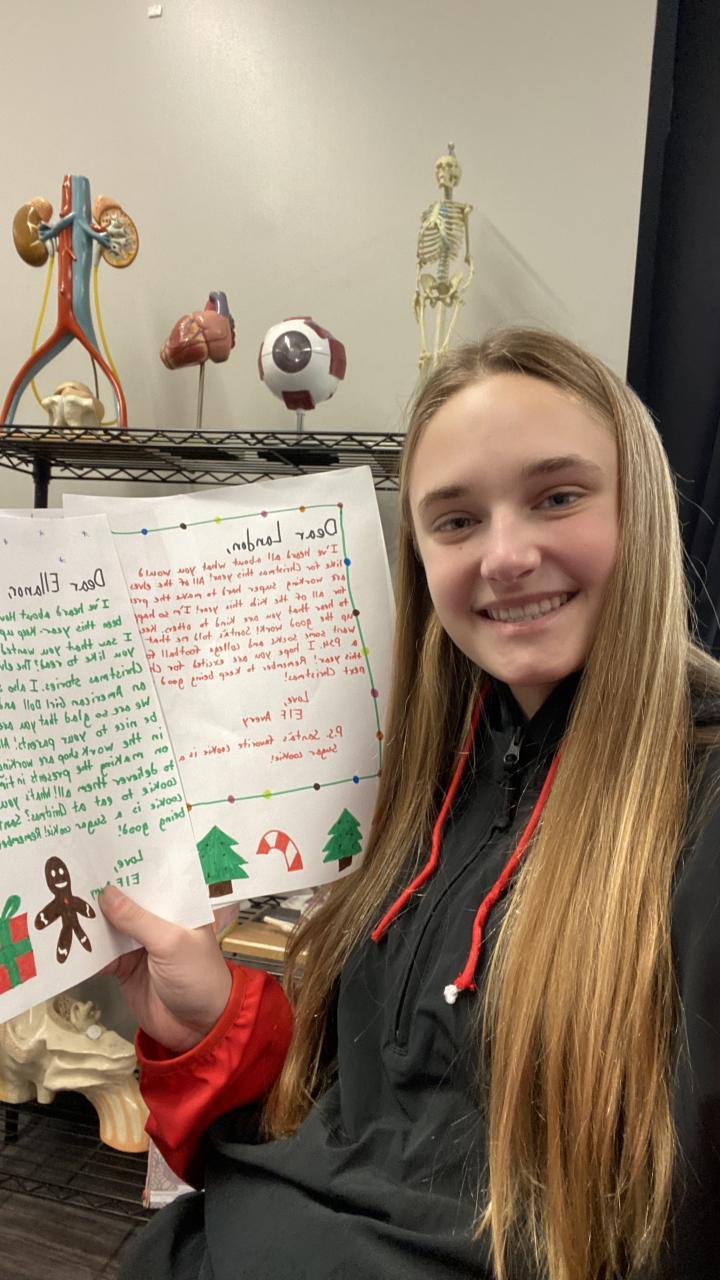 Dear Landon,
I've heard all about what you would
like for Christmas this year! All of the
are working super hard to make the
for all of the kids this year! I'm so
to hear that you are kind to often.
up the good work! Santa's toll me that
want some socks and college football
a PS4. I hope you are excited for
this year! Remember to keep being good
next Christmas!
Love,
Elf Avery
P.S. Santa's favorite cookie is a
Sugar cookie!
Dear Ellanor,
I've heard about how
been this year. Keep up
I saw that you wanted
you like to read! The
Christmas stories. I also
an American Girl Doll and
We are so glad that you are
be nice to your parents! All
in the workshop are working
on making the presents in
to deliever them all! What's your
cookie to eat at Christmas?
cookie is a sugar cookie! Remember
being good!
Love,
Elf